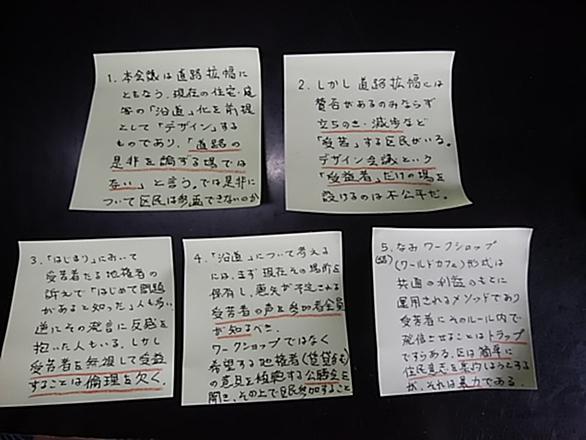 1. 本会議は道路拡幅に
ともなう、現在の住宅・店
舗の「沿道」化を前提
として「デザイン」する
ものであり、「道路の
是非を論ずる場では
ない」と言う。では是非に
ついて区民は参画できないのか
2. しかし道路拡幅には
賛否があるのみならず
立ちのき・減歩など
「受苦」する区民がいる。
デザイン会議という
「受益者」だけの場を
設けるのは不公平だ。
3. 「はじまり」において
受苦者たる地権者の
訴えで「はじめて問題
があると知った」人も多い
逆にその発言に反感を
抱いた人もいる。しかし
受苦者を無視して受益
することは倫理を欠く。
4. 「沿道」について考える
には、まず現在その場所を
保有し、悪失が予定される
受苦者の声を参加者全員
が知るべき。
ワークショップではなく
希望する地権者(賃貸も)
の意見を聴聞する公聴会を
開き、その上で区民参加すること
5. なおワークショップ
(ワールドカフェ)形式は
共通の利益のもとに
運用されるメソッドであり
受苦者にそのルール内で
発信させることはトラップ
ですらある。区は簡単に
住民意志を集約しようとする
が、それは暴力である。